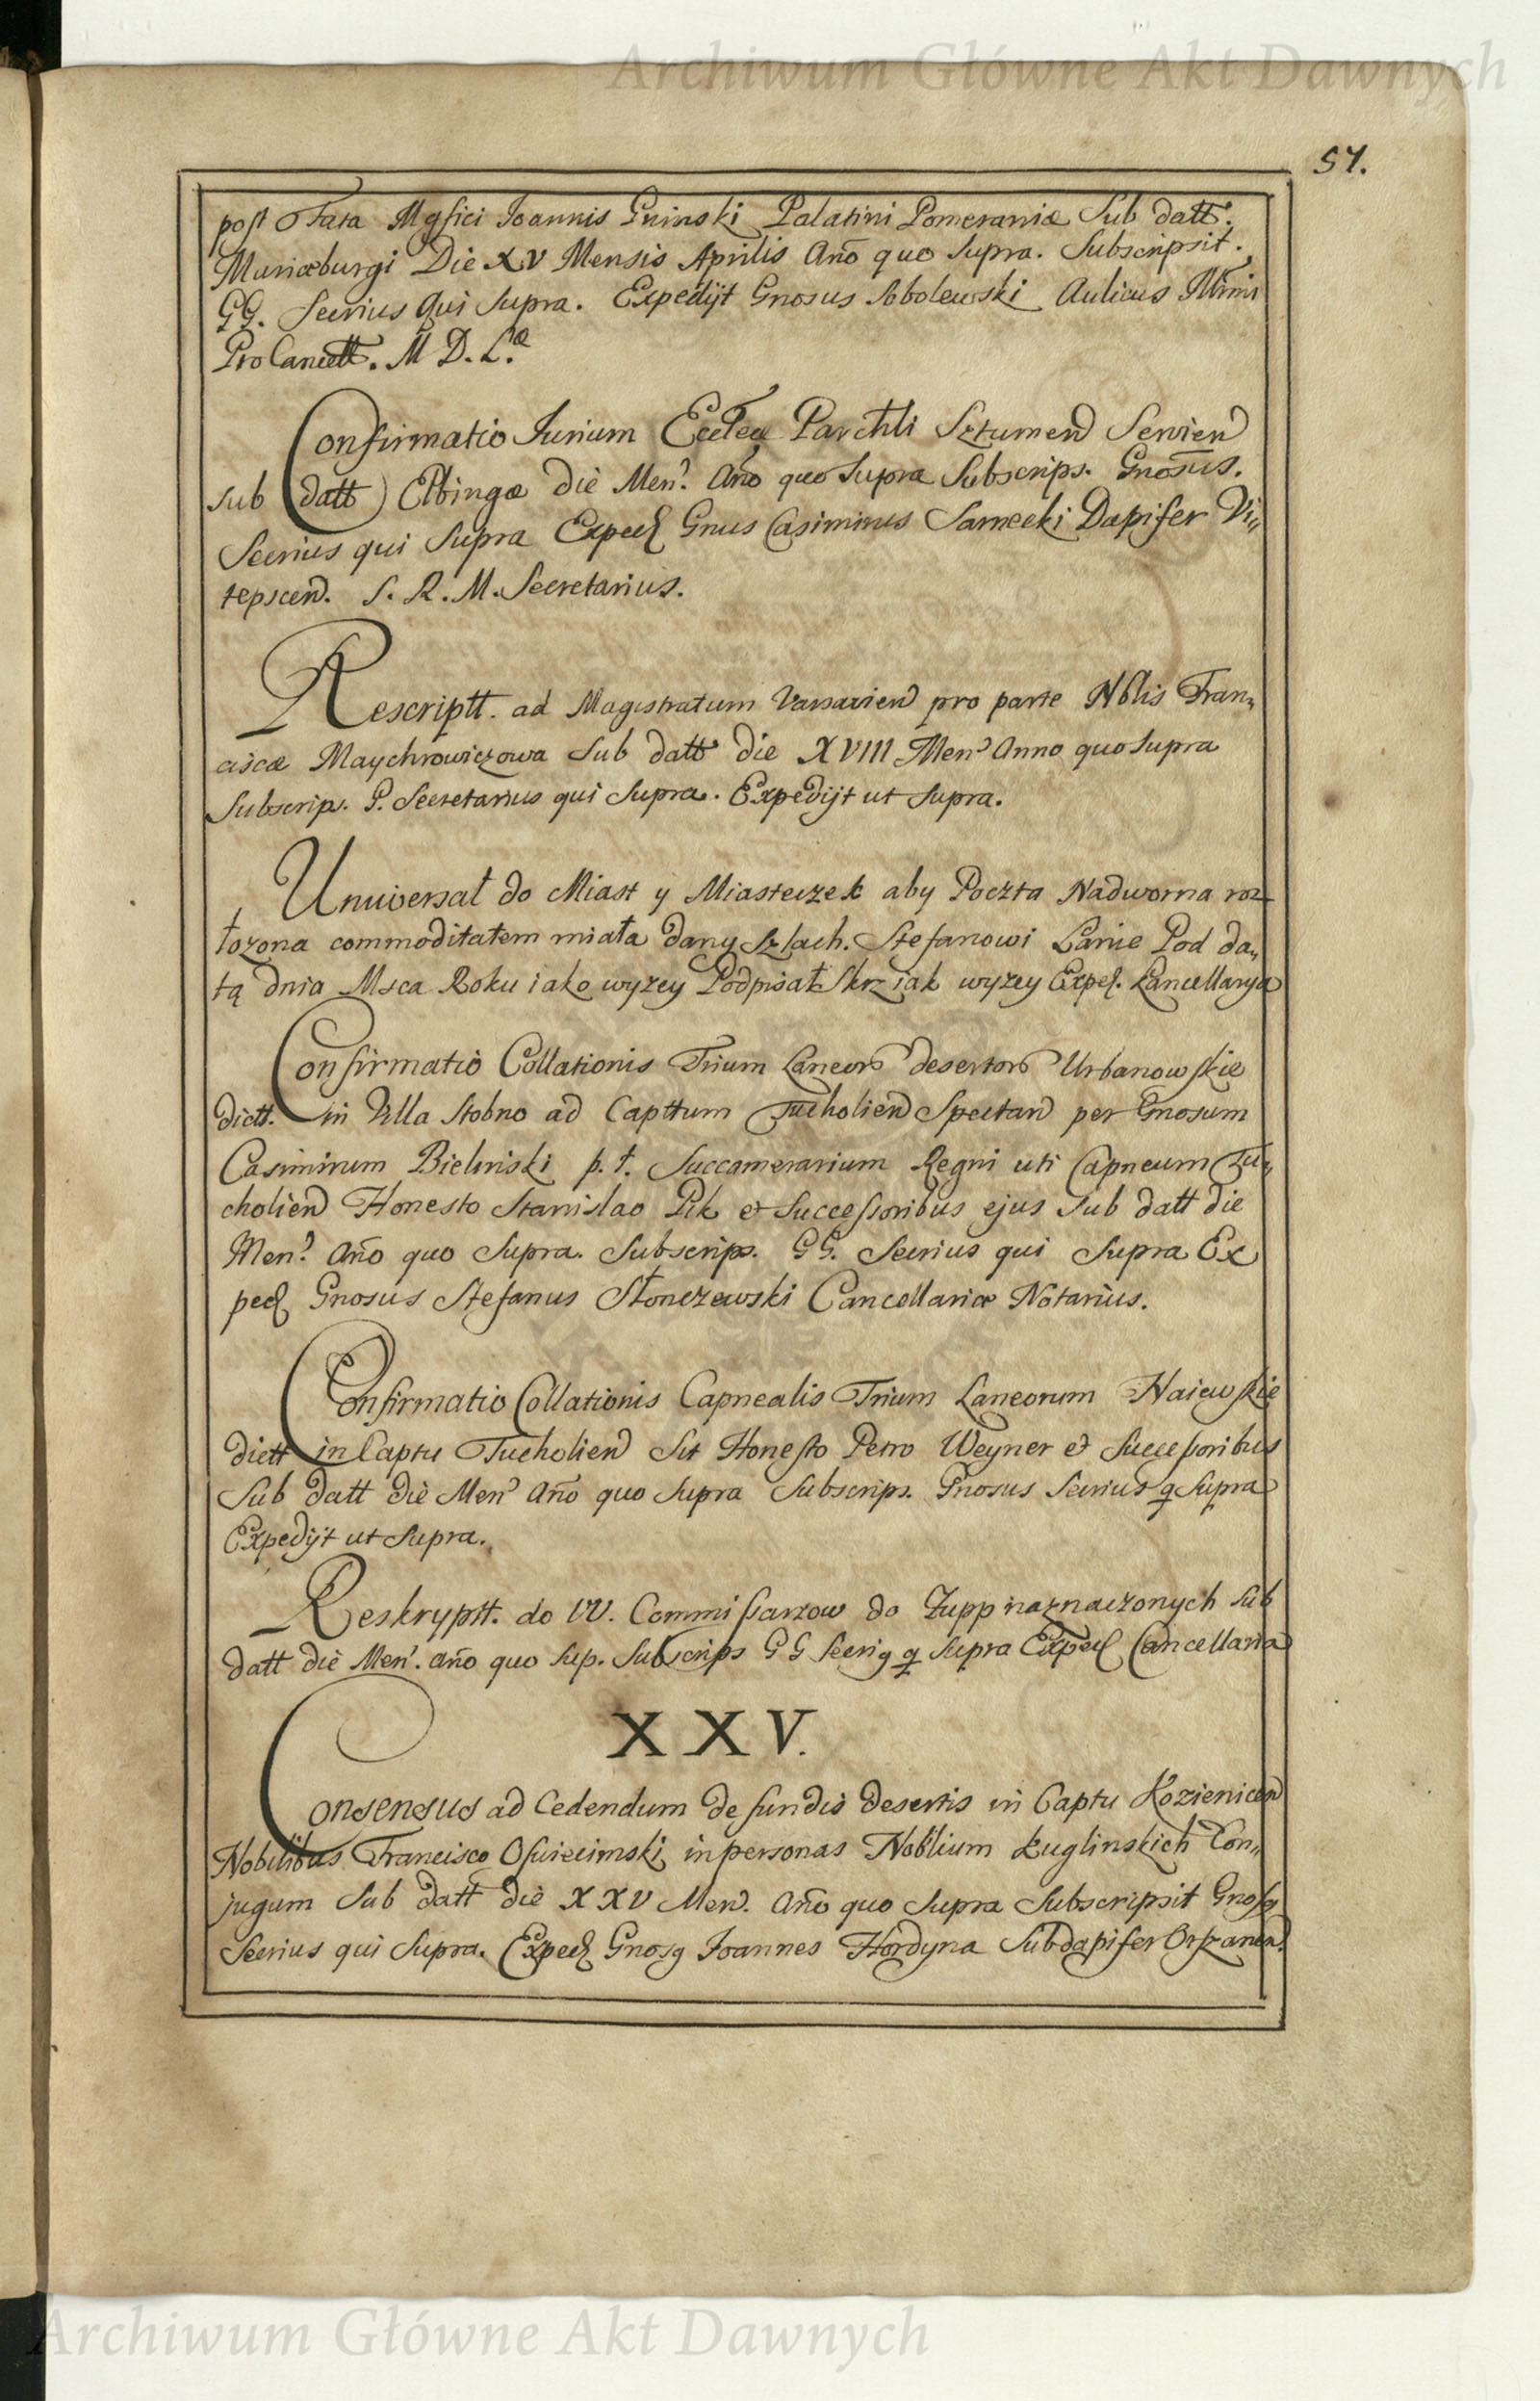 Archiwum Główne Akt Dawnych
57.
post Fata Mgfici Joannis Gninski Palatini Pomeraniæ Sub datt.
Mariæburgi Die XV Mensis Aprilis Año quo Supra. Subscripsit.
GG. Secrius qui Supra. Expedijt Gnosus Sobolewski Aulicus Illmi
ProCancell. M D. L.æ
Confirmatio Jurium Ecclea Parchli Sztumen Servien
sub datt Elbingæ die Men? Año quo Supra Subscrips. Gnosus.
Secrius qui Supra Exped Gnus Casimirus Sarnecki Dapifer Vi„
tepscen. S. R. M. Secretarius.
Rescriptt. ad Magistratum Varsavien pro parte Nblis Fran„
ciscæ Maychrowiczowa Sub datt die XVIII Men? Anno quo Supra
Subscrip. G. Secretarius qui Supra. Expedijt ut Supra.
Uniwersał do Miast y Miasteczek aby Poczta Nadworna roz
łozona commoditatem miała dany Szlach. Stefanowi Larie Pod da„
tą dnia Msca Roku iako wyzey Podpisał Skrz iak wyzey Exped. Kancellarya
Confirmatio Collationis Trium Laneor desertor Urbanowskie
dictt. in Villa Stobno ad Capttum Tucholien Spectan per Gnosum
Casimirum Bielinski p. t. Succamerarium Regni uti Capneum Tu„
cholien Honesto Stanislao Pik et Successoribus ejus sub datt die
Men? Año quo Supra. Subscrips. GG. Secrius qui Supra Ex
ped Gnosus Stefanus Słonczewski Cancellariæ Notarius.
Confirmatio Collationis Capnealis Trium Laneorum Haiewskie
dictt in Captu Tucholien Sit Honesto Petro Weyner et Successoribus
Sub datt die Men? Año quo Supra Subscrips. Gnosus Secrius q Supra
Expedijt ut Supra.
Reskryptt. do VV. Commissarzow do Zupp naznaczonych Sub
datt die Men? año quo Sup. Subscrips GG Secrig q Supra Exped Cancellaria
XXV.
Consensus ad Cedendum de fundis desertis in Captu Kozienicen
Nobilibus Francisco Oswiecimski in personas Noblium Kuglinskich Con„
jugum Sub datt die XXV Men. Año quo Supra Subscripsit Gnosg
Secrius qui Supra. Exped Gnosg Joannes Hordyna Subdapifer Orszanen.
Archiwum Główne Akt Dawnych